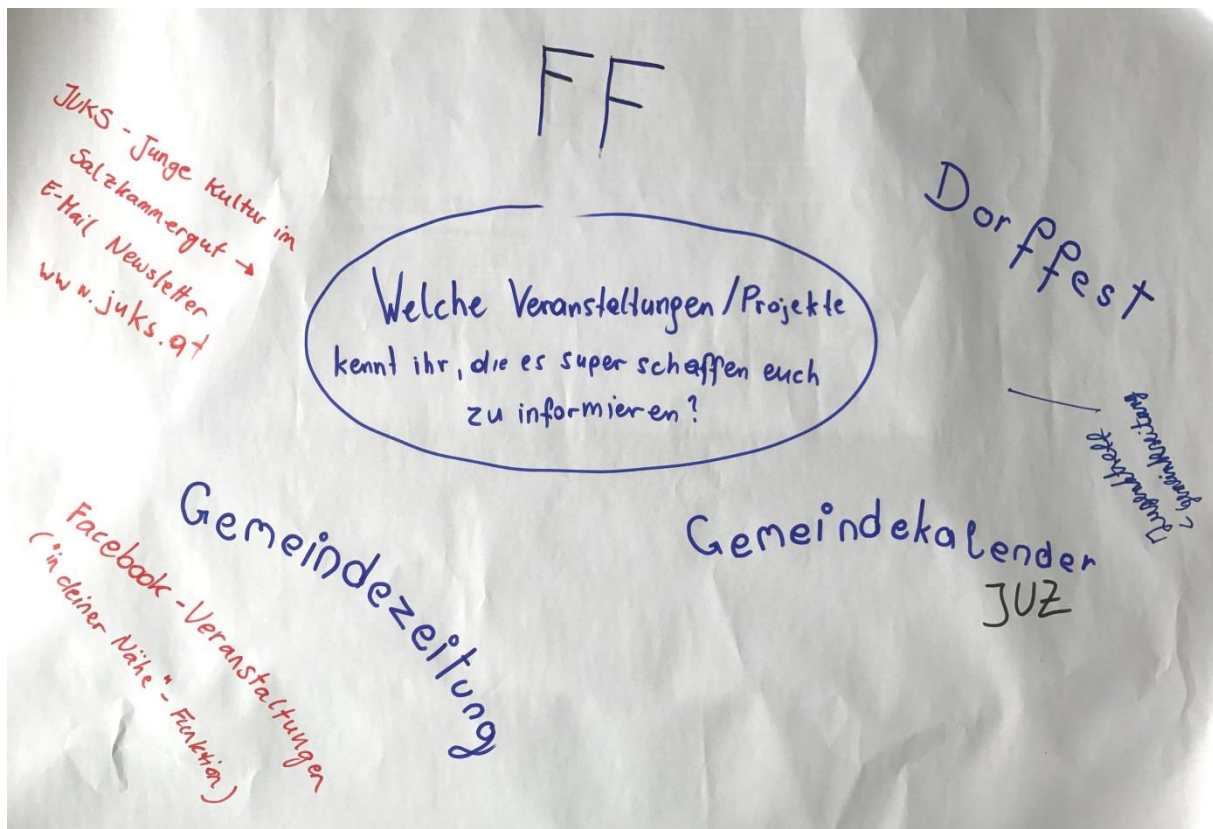 FF
JUKS - Junge Kultur im
Salzkammergut →
E-Mail Newsletter
www.juks.at
Dorffest
Welche Veranstaltungen/Projekte
kennt ihr, die es super schaffen euch
zu informieren?
Jugendtreff
> Gemeindezeitung
Gemeindezeitung
Gemeindekalender
JUZ
Facebook - Veranstaltungen
("in deiner Nähe" - Funktion)